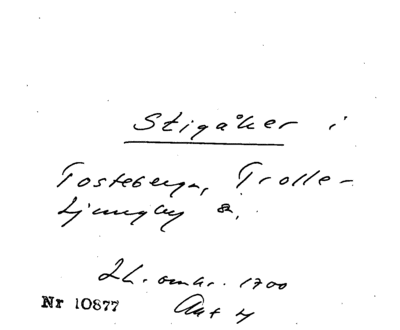 Stigåker i
Tosteberga, Trolle-
Ljungby s.
omkr. 1700
Nr 10877